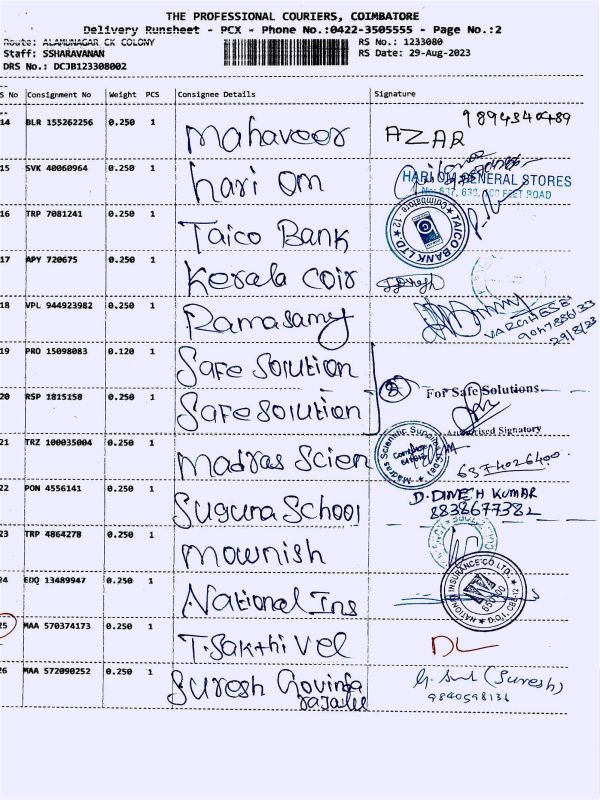 THE PROFESSIONAL COURIERS, COIMBATORE
Delivery Runsheet - PCX - Phone No.:0422-3505555 - Page No.:2
Route: ALAMUNAGAR CK COLONY RS No.: 1233080
Staff: SSHARAVANAN RS Date: 29-Aug-2023
DRS No.: DCJB123308002
S No Consignment No Weight PCS Consignee Details Signature
14 BLR 155262256 0.250 1 Mahaveer AZAR 9894340489
15 SVK 40060964 0.250 1 hari om
HARI OM GENERAL STORES
No: 637, 639, 100 FEET ROAD
16 TRP 7081241 0.250 1 Taico Bank TAICO BANK LTD Coimbatore-12
17 APY 720675 0.250 1 Kerala coir
18 VPL 944923982 0.250 1 Ramasamy
VARGHESE
29/8/23
19 PRO 15098083 0.120 1 Safe Solution
20 RSP 1815158 0.250 1 Safe solution
For Safe Solutions
Authorised Signatory
21 TRZ 100035004 0.250 1 Madras Scien
6374026400
22 PON 4556141 0.250 1 Suguna School D. DINESH KUMAR
8838677382
23 TRP 4864278 0.250 1 Mownish
24 EDQ 13489947 0.250 1 National Ins NATIONAL INSURANCE CO LTD.
25 MAA 570374173 0.250 1 T. Sakthi Vel DL
26 MAA 572090252 0.250 1 Suresh Govinda
rajalu
(Suresh)
9840598131